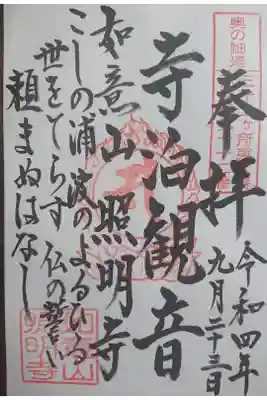 奥の細道
奉拝
令和四年
九月二十三日
寺泊観音
如意山照明寺
こしの浦波のよるひる
世をてらす 仏の誓い
頼まぬはなし